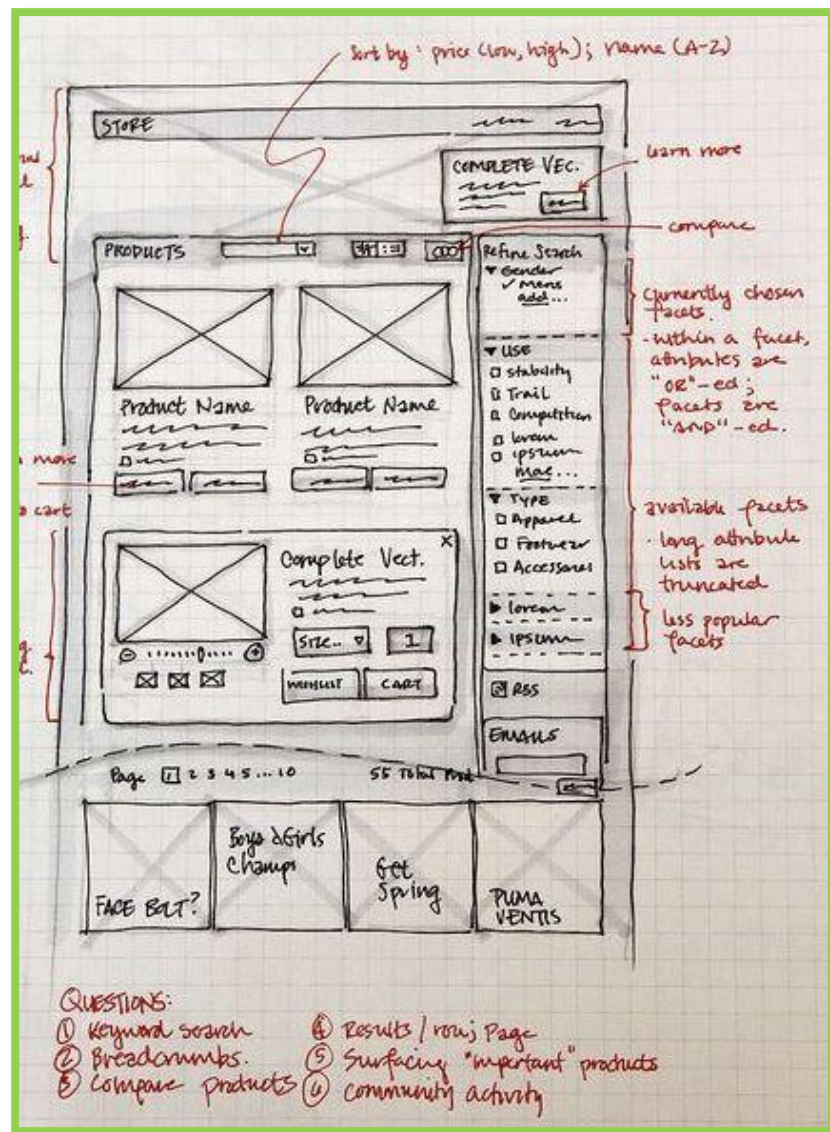 Sort by: price (low, high); name (A-Z)
STORE
COMPLETE VEC.
learn more
compare
PRODUCTS
Refine Search
Gender
✓ Mens
add...
currently chosen
facets.
- within a facet,
attributes are
"OR"-ed;
facets are
"AND"-ed.
USE
Stability
Trail
Competition
lorem
ipsum
more...
Product Name
Product Name
more
cart
TYPE
Apparel
Footwear
Accessories
available facets
- long attribute
lists are
truncated
lorem
ipsum
less popular
facets
Complete Vect.
X
SIZE..
1
WISHLIST
CART
RSS
EMAILS
Page 1 2 3 4 5 ... 10
55 Total Prod
FACE BOLT?
Boys & Girls
Champs
Get
Spring
PUMA
VENTIS
QUESTIONS:
① Keyword search
② Breadcrumbs.
③ Compare products
④ Results / row; page
⑤ Surfacing "important" products
⑥ Community activity